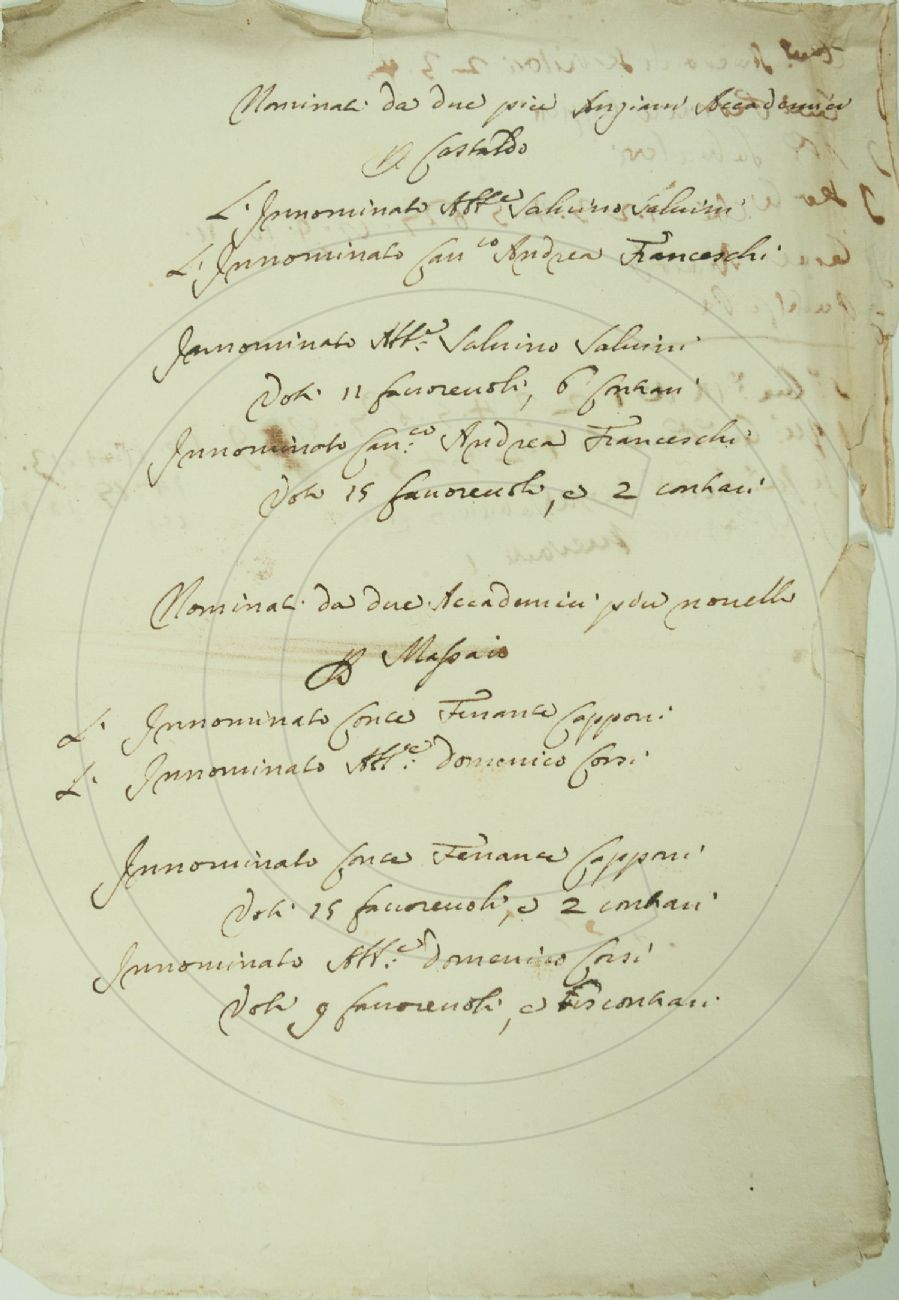 Nominati da due più Anziani Accademici
P Castaldo
L'Innominato Abb.e Salvino Salvini
L'Innominato Can.co Andrea Franceschi
Innominato Abb.e Salvino Salvini
Voti 11 favorevoli, 6 contrari
Innominato Can.co Andrea Franceschi
Voti 15 favorevoli, e 2 contrari
Nominati da due Accademici più novelli
P Massaio
L' Innominato Conte Ferrante Capponi
L' Innominato Abb.e Domenico Corsi
Innominato Conte Ferrante Capponi
Voti 15 favorevoli, e 2 contrari
Innominato Abb.e Domenico Corsi
Voti 9 favorevoli, e contrari